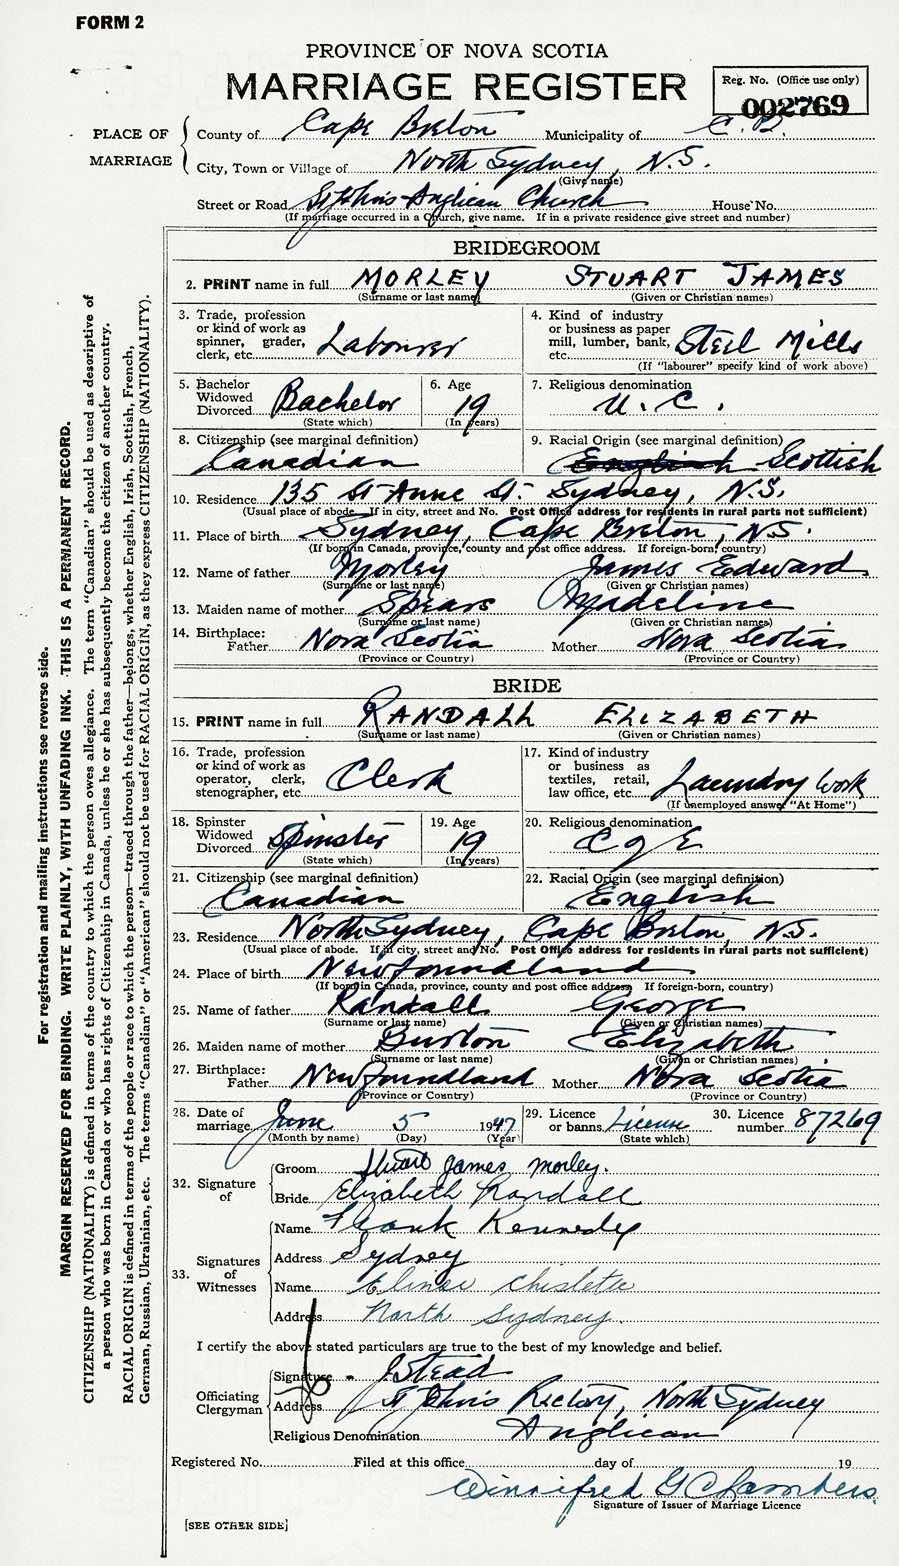 FORM 2
PROVINCE OF NOVA SCOTIA
MARRIAGE REGISTER
Reg. No. (Office use only)
002769
PLACE OF MARRIAGE
County of Cape Breton Municipality of C. B.
City, Town or Village of North Sydney, N.S.
(Give name)
Street or Road St John's Anglican Church House No.
(If marriage occurred in a Church, give name. If in a private residence give street and number)
BRIDEGROOM
2. PRINT name in full MORLEY STUART JAMES
(Surname or last name) (Given or Christian names)
3. Trade, profession or kind of work as spinner, grader, clerk, etc. Labourer
4. Kind of industry or business as paper mill, lumber, bank, etc. Steel Mills
(If "labourer" specify kind of work above)
5. Bachelor Widowed Divorced Bachelor
(State which)
6. Age 19
(In years)
7. Religious denomination
U. C.
8. Citizenship (see marginal definition)
Canadian
9. Racial Origin (see marginal definition)
English Scottish
10. Residence 135 St Anne St. Sydney, N.S.
(Usual place of abode. If in city, street and No. Post Office address for residents in rural parts not sufficient)
11. Place of birth Sydney, Cape Breton, N.S.
(If born in Canada, province, county and post office address. If foreign-born, country)
12. Name of father Morley James Edward
(Surname or last name) (Given or Christian names)
13. Maiden name of mother Spears Madeline
(Surname or last name) (Given or Christian names)
14. Birthplace: Father Nova Scotia Mother Nova Scotia
(Province or Country) (Province or Country)
BRIDE
15. PRINT name in full RANDALL ELIZABETH
(Surname or last name) (Given or Christian names)
16. Trade, profession or kind of work as operator, clerk, stenographer, etc. Clerk
17. Kind of industry or business as textiles, retail, law office, etc. Laundry Work
(If unemployed answer "At Home")
18. Spinster Widowed Divorced Spinster
(State which)
19. Age 19
(In years)
20. Religious denomination
C of E
21. Citizenship (see marginal definition)
Canadian
22. Racial Origin (see marginal definition)
English
23. Residence North Sydney, Cape Breton, N.S.
(Usual place of abode. If in city, street and No. Post Office address for residents in rural parts not sufficient)
24. Place of birth Newfoundland
(If born in Canada, province, county and post office address. If foreign-born, country)
25. Name of father Randall George
(Surname or last name) (Given or Christian names)
26. Maiden name of mother Burton Elizabeth
(Surname or last name) (Given or Christian names)
27. Birthplace: Father Newfoundland Mother Nova Scotia
(Province or Country) (Province or Country)
28. Date of marriage June 5 1947
(Month by name) (Day) (Year)
29. Licence or banns License
(State which)
30. Licence number 87269
32. Signature of
Groom Stuart James Morley.
Bride Elizabeth Randall
33. Signatures of Witnesses
Name Frank Kennedy
Address Sydney
Name Chislett
Address North Sydney.
I certify the above stated particulars are true to the best of my knowledge and belief.
Officiating Clergyman
Signature J. Stead
Address St John's Rectory, North Sydney
Religious Denomination Anglican
Registered No. Filed at this office day of 19
Winnifred G Chambers.
Signature of Issuer of Marriage Licence
[SEE OTHER SIDE]
For registration and mailing instructions see reverse side.
MARGIN RESERVED FOR BINDING. WRITE PLAINLY, WITH UNFADING INK. THIS IS A PERMANENT RECORD.
CITIZENSHIP (NATIONALITY) is defined in terms of the country to which the person owes allegiance. The term "Canadian" should be used as descriptive of
a person who was born in Canada or who has rights of Citizenship in Canada, unless he or she has subsequently become the citizen of another country.
RACIAL ORIGIN is defined in terms of the people or race to which the person—traced through the father—belongs, whether English, Irish, Scottish, French,
German, Russian, Ukrainian, etc. The terms "Canadian" or "American" should not be used for RACIAL ORIGIN, as they express CITIZENSHIP (NATIONALITY).